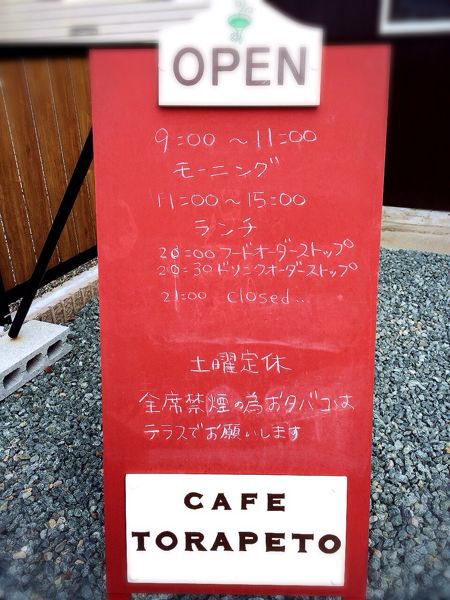 OPEN
9:00 〜 11:00
モーニング
11:00 〜 15:00
ランチ
20:00 フードオーダーストップ
20:30 ドリンクオーダーストップ
21:00 closed...
土曜定休
全席禁煙の為おタバコは
テラスでお願いします
CAFE
TORAPETO